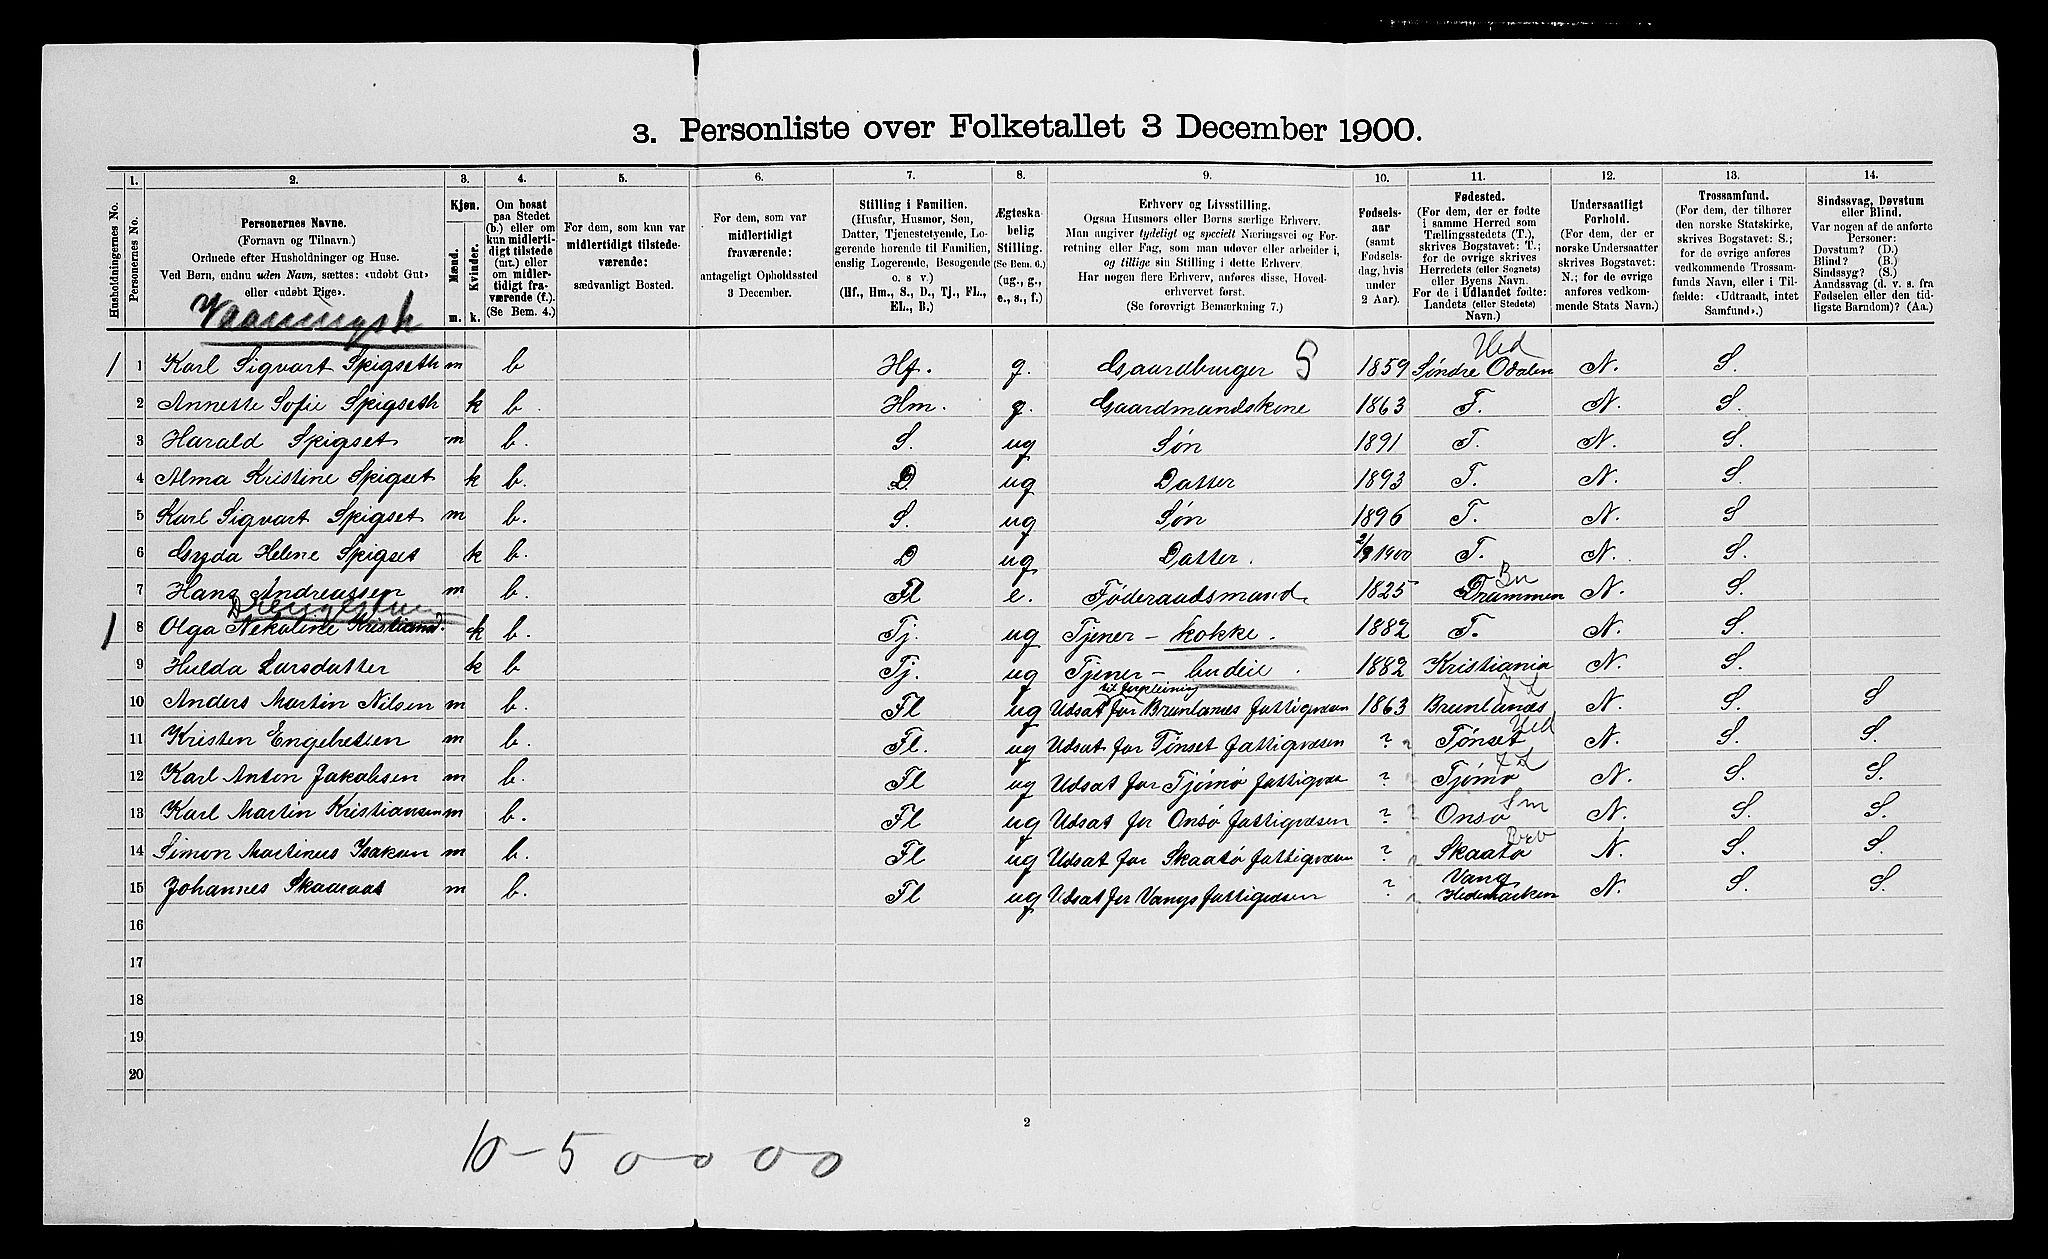 3. Personliste over Folketallet 3 December 1900.
Husholdningernes No.
1. Personernes No.
2. Personernes Navne. (Fornavn og Tilnavn.) Ordnede efter Husholdninger og Huse. Ved Børn, endnu uden Navn, sættes: «udøbt Gut» eller «udøbt Pige».
3. Kjøn. Mænd. m. Kvinder. k.
4. Om bosat paa Stedet (b.) eller om kun midlertidigt tilstede (mt.) eller om midlertidigt fraværende (f.). (Se Bem. 4.)
5. For dem, som kun var midlertidigt tilstedeværende: sædvanligt Bosted.
6. For dem, som var midlertidigt fraværende: antageligt Opholdssted 3 December.
7. Stilling i Familien. (Husfar, Husmor, Søn, Datter, Tjenestetyende, Logerende hørende til Familien, enslig Logerende, Besøgende o. s v.) (Hf., Hm., S., D., Tj., FL., EL., B.)
8. Ægteskabelig Stilling. (Se Bem. 6.) (ug., g., e., s., f.)
9. Erhverv og Livsstilling. Ogsaa Husmors eller Børns særlige Erhverv. Man angiver tydeligt og specielt Næringsvei og Forretning eller Fag, som man udøver eller arbeider i, og tillige sin Stilling i dette Erhverv. Har nogen flere Erhverv, anføres disse, Hovederhvervet først. (Se forøvrigt Bemærkning 7.)
10. Fødselsaar (samt Fødselsdag, hvis under 2 Aar).
11. Fødested. (For dem, der er fødte i samme Herred som Tællingsstedets (T.), skrives Bogstavet: T.; for de øvrige skrives Herredets (eller Sognets) eller Byens Navn. For de i Udlandet fødte: Landets (eller Stedets) Navn.)
12. Undersaatligt Forhold. (For dem, der er norske Undersaatter skrives Bogstavet: N.; for de øvrige anføres vedkommende Stats Navn.)
13. Trossamfund. (For dem, der tilhører den norske Statskirke, skrives Bogstavet: S.; for de øvrige anføres vedkommende Trossamfunds Navn, eller i Tilfælde: «Udtraadt, intet Samfund».)
14. Sindssvag, Døvstum eller Blind. Var nogen af de anførte Personer: Døvstum? (D.) Blind? (B.) Sindssyg? (S.) Aandssvag (d. v. s. fra Fødselen eller den tidligste Barndom)? (Aa.)
1 1 Karl Sigvart Spigseth m b Hf. g. Gaardbruger S 1859 Søndre Odalen Hed N. S.
2 Annette Sofie Spigseth k b. Hm. g. Gaardmandskone 1863 T. N. S
3 Harald Spigset m b. S. ug Søn 1891 T. N. S.
4 Alma Kristine Spigset k b. D. ug Datter 1893 T. N. S.
5 Karl Sigvart Spigset m b. S. ug Søn 1896 T. N. S
6 Gyda Helene Spigset k b. D ug Datter. 1900 T. N. S.
7 Hans Andreassen m b. Fl e. Føderaadsmand 1825 Drammen Bu N. S.
Drengestuen
1 8 Olga Nekoline k b. Tj. ug Tjener – kokke. 1882 T. N. S.
9 Hulda Larsdatter k b Tj. ug Tjener – budeie. 1882 Kristiania N. S.
10 Anders Martin Nilsen m b. Fl ug Udsat til forpleining for Brunlanes fattigvæsen 1863 Brunlanes N. S. S
11 Kristen Engebretsen m b. Fl. ug Udsat for Tønset fattigvæsen ? Tønset Hed N. S. S.
12 Karl Anton Jakobsen m b. Fl ug Udsat for Tjømø ? Tjømø N. S. S.
13 Karl Martin Kristiansen m b. Fl ug Udsat for Onsø fattigvæsen ? Onsø Sm N. S. S.
14 Simon Martinus Isaksen m b. Fl ug Udsat for Skaatø fattigvæsen ? Skaatø N. S. S.
15 Johannes m b. Fl ug Udsat for Vangs fattigvæsen ? Vang Hedemarken N. S. S.
16
17
18
19
20
2
10 – 5 0 – 0 0 0